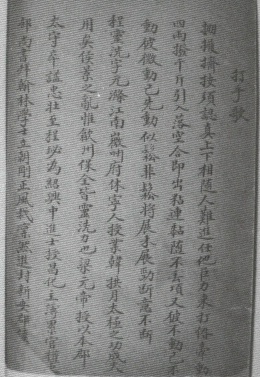 打手歌
掤擠須認真上下相随人難進任他巨力來打
四兩撥千斤引入落空合即出粘連黏随不丟項又彼不動己不
動彼微動己先動似鬆非鬆將展未展勁斷意不斷
程靈洗字元滌江南徽州府休寧人授業韓拱月太極之功成大
用矣侯景之亂惟歙州保全皆靈洗力也梁元帝授以本郡
太守卒謚忠壯至程珌為紹興中進士授昌化主簿累官權
部尚書拜翰林學士立朝剛正風裁凜然進封新安郡侯